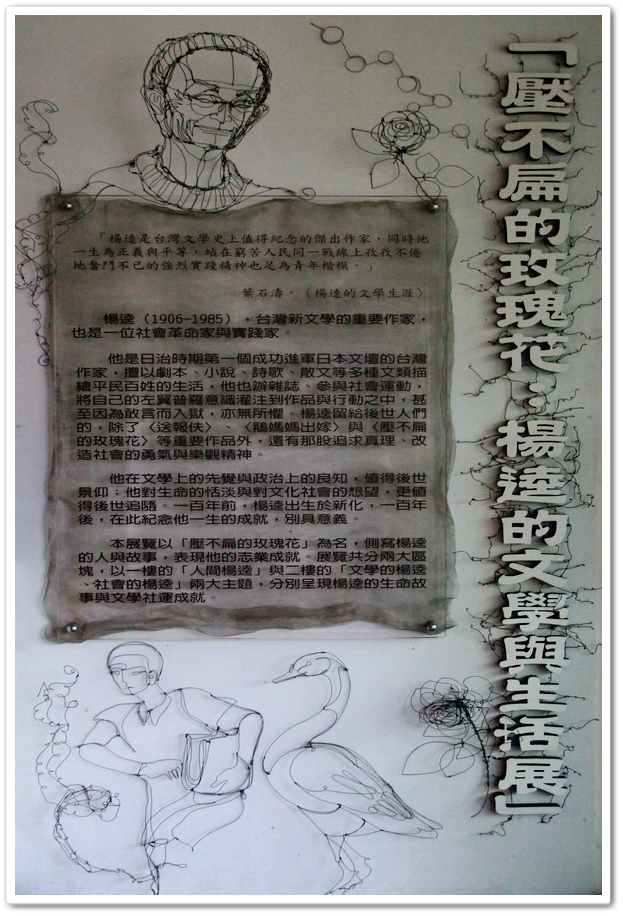 「壓不扁的玫瑰花：楊逵的文學與生活展」
「楊逵是台灣文學史上值得紀念的傑出作家，同時他
一生為正義與平等，站在窮苦人民同一戰線上孜孜不倦
地奮鬥不已的強烈實踐精神也足為青年楷模。」
葉石濤，〈楊逵的文學生涯〉
楊逵（1906-1985），台灣新文學的重要作家，
也是一位社會革命家與實踐家。
他是日治時期第一個成功進軍日本文壇的台灣
作家，擅以劇本、小說、詩歌、散文等多種文類描
繪平民百姓的生活，他也辦雜誌、參與社會運動，
將自己的左翼普羅意識灌注到作品與行動之中，甚
至因為敢言而入獄，亦無所懼。楊逵留給後世人們
的，除了〈送報伕〉、〈鵝媽媽出嫁〉與〈壓不扁
的玫瑰花〉等重要作品外，還有那股追求真理、改
造社會的勇氣與樂觀精神。
他在文學上的先覺與政治上的良知，值得後世
景仰；他對生命的恬淡與對文化社會的想望，更值
得後世追隨。一百年前，楊逵出生於新化，一百年
後，在此紀念他一生的成就，別具意義。
本展覽以「壓不扁的玫瑰花」為名，側寫楊逵
的人與故事，表現他的志業成就。展覽共分兩大區
塊，以一樓的「人間楊逵」與二樓的「文學的楊逵
、社會的楊逵」兩大主題，分別呈現楊逵的生命故
事與文學社運成就。